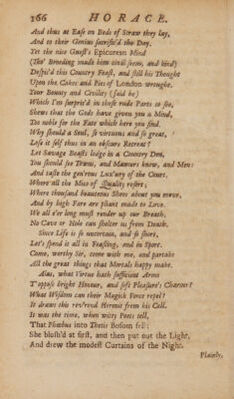 166 HORACE.
And thus at Ease on Beds of Straw they lay,
And to their Genius sacrific'd the Day.
Yet the nice Guest's Epicurean Mind
(Tho' Breeding made him civil seem, and kind)
Despis'd this Country Feast, and still his Thought
Upon the Cakes and Pies of London wrought.
Your Bounty and Civility (said he)
Which I'm surpriz'd in these rude Parts to see,
Shews that the Gods have given you a Mind,
Too noble for the Fate which here you find.
Why should a Soul, so virtuous and so great,
Lose it self thus in an obscure Retreat?
Let Savage Beasts lodge in a Country Den,
You should see Towns, and Manners know, and Men:
And taste the gen'rous Lux'ury of the Court.
Where all the Mice of Quality resort;
Where thousand beauteous Shees about you move,
And by high Fare are pliant made to Love.
We all e'er long must render up our Breath,
No Cave or Hole can shelter us from Death.
Since Life is so uncertain, and so short,
Let's spend it all in Feasting, and in Sport.
Come, worthy Sir, come with me, and partake
All the great things that Mortals happy make.
Alas, what Virtue hath sufficient Arms
T'oppose bright Honour, and soft Pleasure's Charms?
What Wisdom can their Magick Force repel?
It draws this rev'rend Hermit from his Cell.
It was the time, when witty Poets tell,
That Phœbus into Thetis Bosom fell:
She blush'd at first, and then put out the Light,
And drew the modest Curtains of the Night.
Plainly,